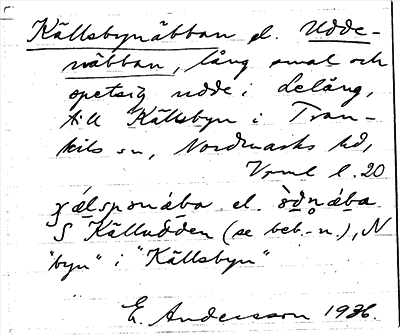 Källsbynäbban el. Udde-
näbban, lång smal och
spetsig udde i Lelång,
till Källsbyn i Tran-
kils sn, Nordmarks hd,
Vrml l. 20
el.
S Källudden (se beb.-n.), N
"byn" i "Källsbyn"
E. Andersson 1936.